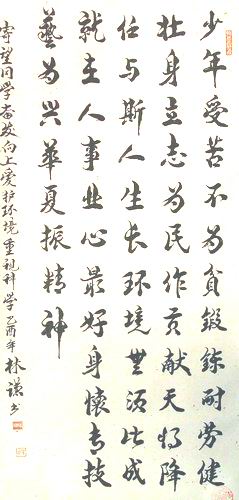 少年受苦不为貧鍛鍊耐劳健
壮身立志为民作贡献天将降
任与斯人生长环境無须比成
就主人事业心最好身懷专技
藝为兴華夏振精神
寄望同学奋发向上爱护环境重視科学乙酉年林谦书